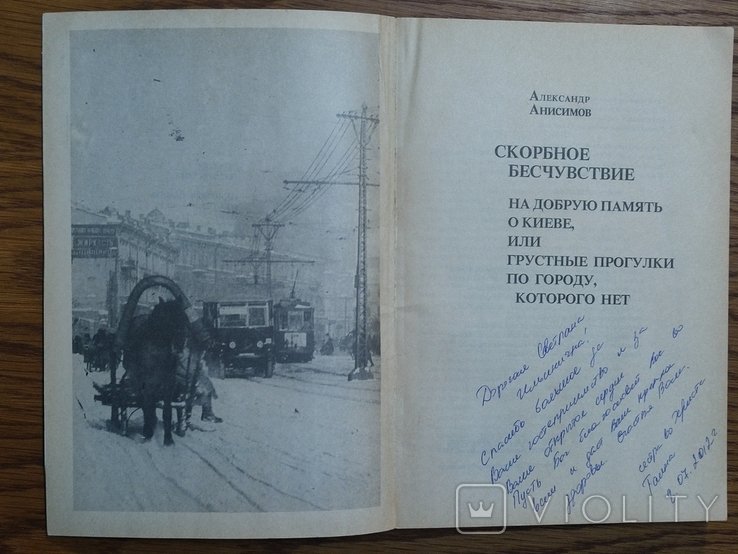 Александр
Анисимов
СКОРБНОЕ
БЕСЧУВСТВИЕ
НА ДОБРУЮ ПАМЯТЬ
О КИЕВЕ,
ИЛИ
ГРУСТНЫЕ ПРОГУЛКИ
ПО ГОРОДУ,
КОТОРОГО НЕТ
Дорогая Светлана
Ильинична,
Спасибо большое за
Ваше гостеприимство и за
Ваше открытое сердце
Пусть Бог благословит Вас во
всем и даст Вам крепкого
здоровья счастья Вам.
сестра во Христе
Галина
07.2017 г
VIOLITY